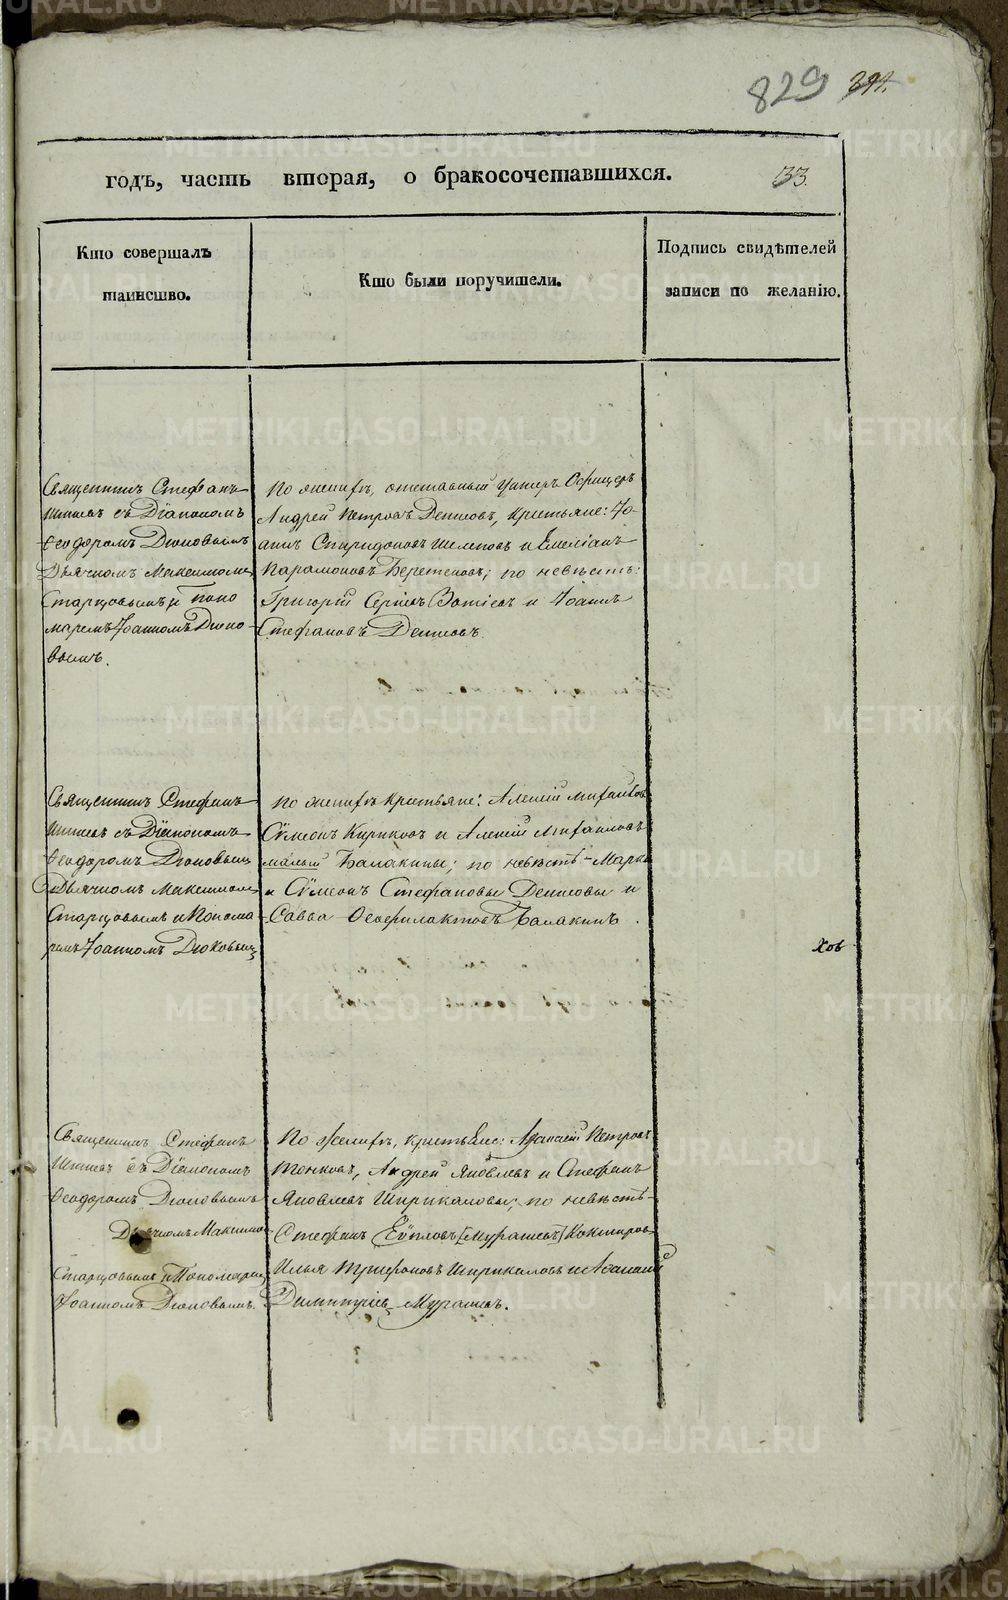 829
годъ, часть вторая, о бракосочетавшихся.
33.
Кто совершалъ
таинство.
Кто были поручители.
Подпись свидѣтелей
записи по желанію.
Священникъ Стефанъ
съ Діакономъ
Ѳеодоромъ Дюковымъ
Дьячкомъ Максимомъ
Старцовымъ и Поно
маремъ Іоанномъ Дюко-
вымъ.
По женихѣ, отставный Унтеръ Офицеръ
Андрей Петровъ Денисовъ, крестьяне: Іо-
аннъ Спиридоновъ Шелеповъ и Емеліанъ
Парамоновъ Береженовъ; по невѣстѣ:
Григорій Сергіевъ и Іоаннъ
Стефановъ Денисовъ.
Священникъ Стефанъ
съ Діакономъ
Ѳеодоромъ Дюковымъ
Дьячкомъ Максимомъ
Старцовымъ и Понома
ремъ Іоанномъ Дюковымъ
По женихѣ крестьяне: Алексій Михайлов
Сѵмеонъ Кириковъ и Алексій Михаиловъ
малый Балакины; по невѣстѣ Марко
и Сѵмеонъ Стефановы Денисовы и
Савва Ѳеофилактовъ Балакинъ.
Священникъ Стефанъ
съ Діакономъ
Ѳеодоромъ Дюковымъ
Дьячкомъ Максимо-
Старцовымъ и Пономаремъ
Іоанномъ Дюковымъ.
По женихѣ, крестьяне: Аѳанасій Петровъ
Тонковъ, Андрей Яковлевъ и Стефанъ
Яковлевъ Ширикаловы; по невѣстѣ
Стефанъ Еѵпловъ [Мурашевъ] Кокшаров
Илья Трифоновъ Ширикаловъ и Аѳанасій
Димитріевъ Мурашевъ.
METRIKI.GASO-URAL.RU